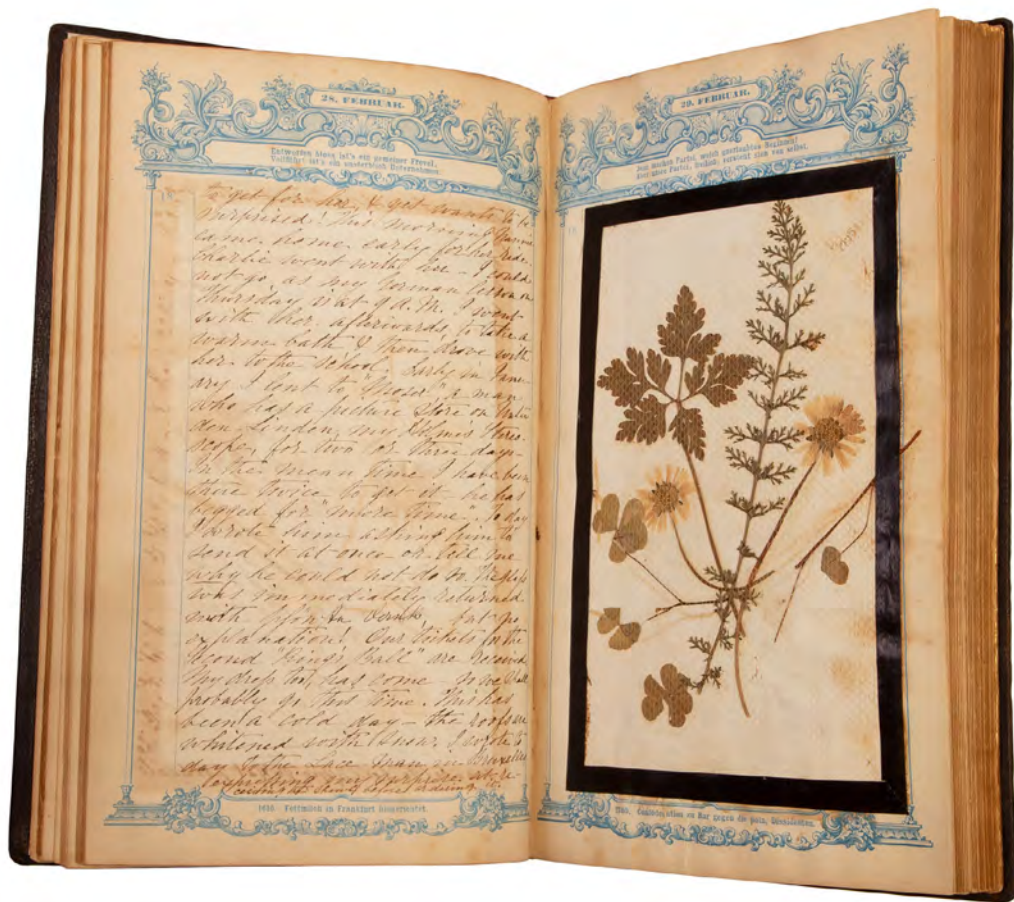 28. FEBRUAR.
Entworfen bloss ist's ein gemeiner Frevel,
Vollführt ist's ein unsterblich Unternehmen.
18
to get for her, & yet wants to be
surprised! This morning
came home early for her ride.
Charlie went with her – I could
not go as my German lesson on
Thursday is at 9 A.M. I went
with her afterwards to take a
warm bath & then drove with
her to the school. Early in Janu-
ary I lent to a man
who has a picture store on Unter
den Linden, my Holmes Stereo-
scope, for two or three days –
In the mean time I have been
there twice to get it – he has
begged for "more time". To day
I wrote him asking him to
send it at once or tell me
why he could not do so. The glass
was immediately returned
with but no
explanation! Our tickets for the
second "King's Ball" are received
My dress too, has come – so we shall
probably go this time. This has
been a cold day – the roofs are
whitened with snow. I wrote to
day to the Lace Man in Bruxelles
expressing my surprise at re-
29. FEBRUAR.
Der Partei,
18